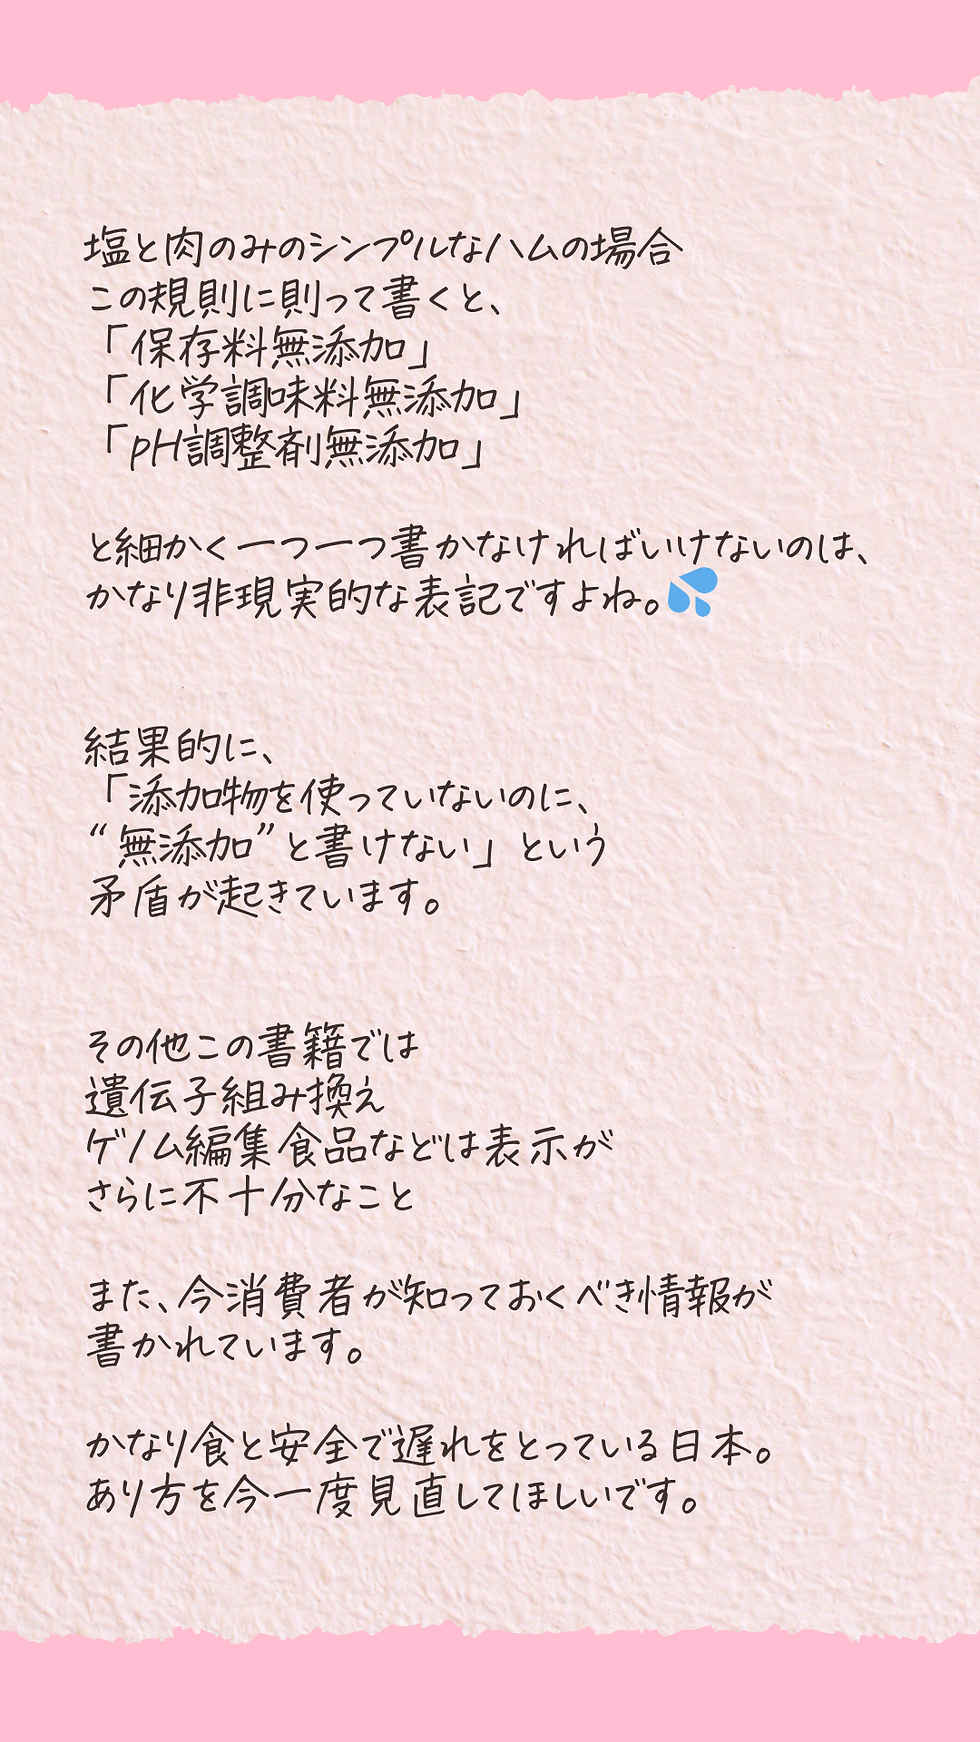 塩と肉のみのシンプルなハムの場合
この規則に則って書くと、
「保存料無添加」
「化学調味料無添加」
「pH調整剤無添加」
と細かく一つ一つ書かなければいけないのは、
かなり非現実的な表記ですよね。💦
結果的に、
「添加物を使っていないのに、
“無添加”と書けない」という
矛盾が起きています。
その他この書籍では
遺伝子組み換え
ゲノム編集食品などは表示が
さらに不十分なこと
また、今消費者が知っておくべき情報が
書かれています。
かなり食と安全で遅れをとっている日本。
あり方を今一度見直してほしいです。